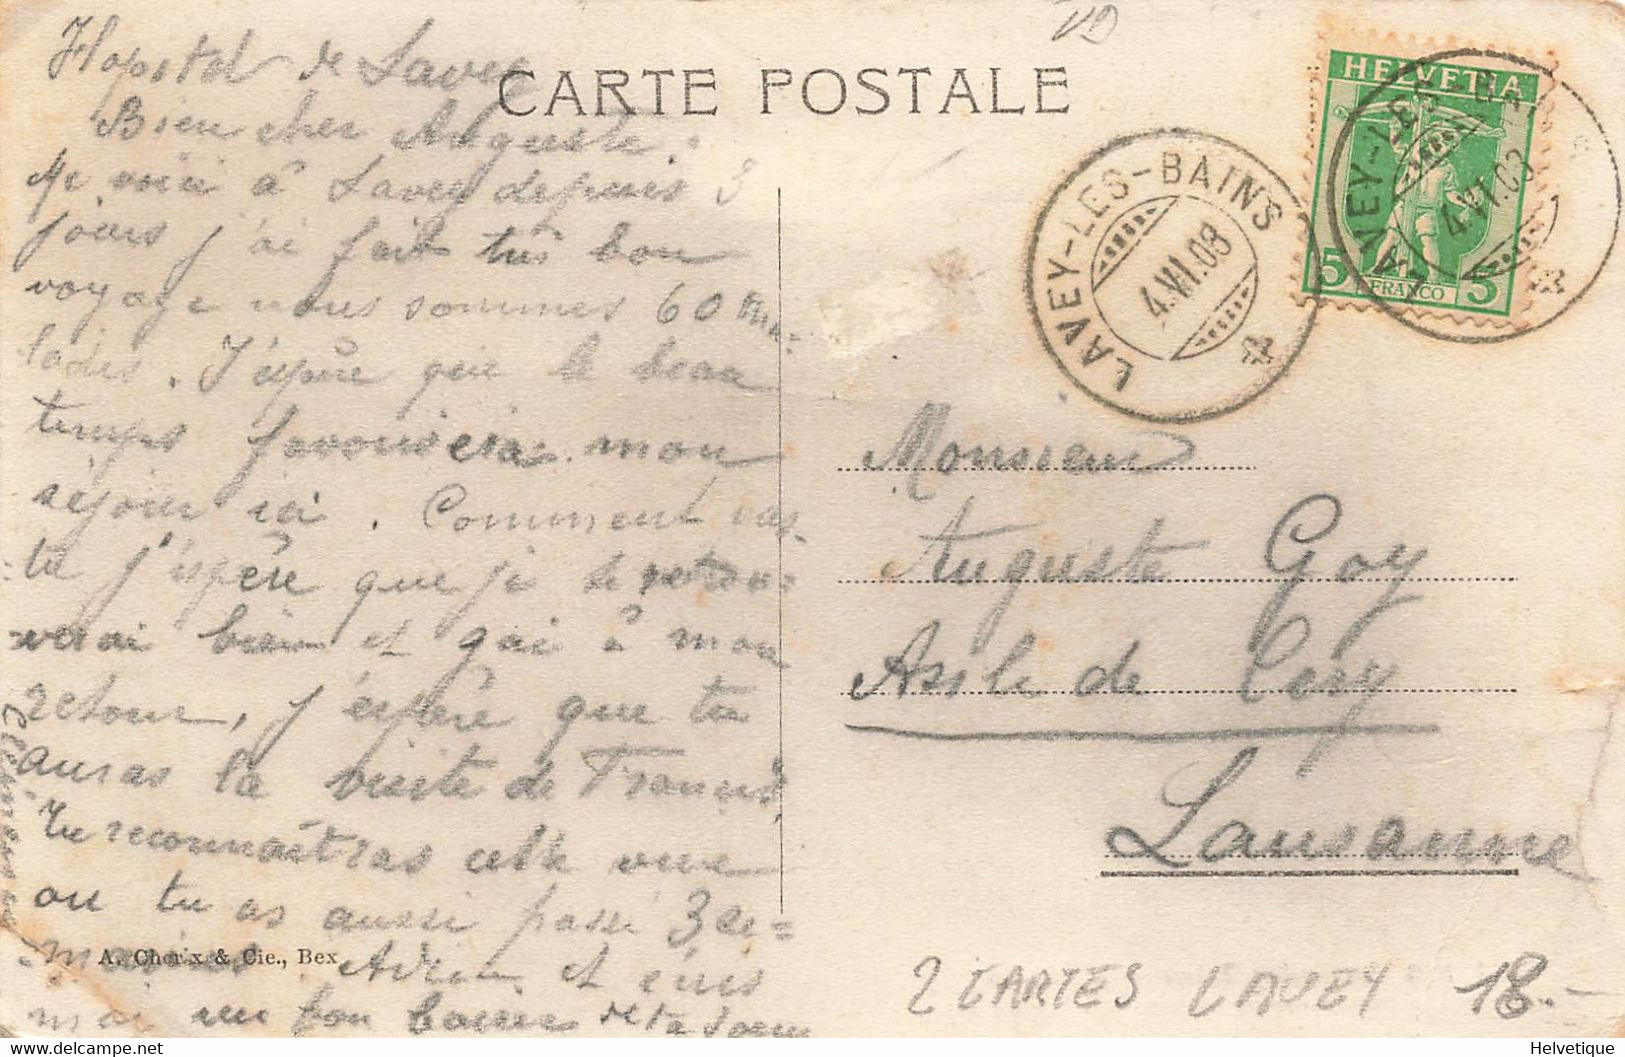 VD
CARTE POSTALE
Hopital de Lavey
Bien cher Auguste.
Me voici à Lavey depuis 3
jours j'ai fait très bon
voyage nous sommes 60 ma-
lades. J'espère que le beau
temps favorisera mon
séjour ici. Comment vas
tu j'espère que je te retrou-
verai bien et gai à mon
retour, j'espère que tu
auras la visite de Francis
Tu reconnaîtras cette vue
ou tu as aussi passé 3 se=
maines. Adieu et
moi un bon baiser de ta soeur
A. Cherix & Cie., Bex
HELVETIA
5 FRANCO 5
LAVEY-LES-BAINS
4.VI.08
LAVEY-LES-BAINS
4.VI.08
Monsieur
Auguste Goy
Asile de Cery
Lausanne
2 CARTES LAVEY 18.-
Helvetique
www.delcampe.net